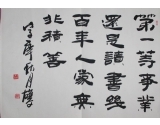 第一等事業
還是讀書幾
百年人家無
非積善